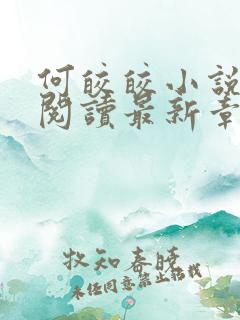 何皎皎小說
閱讀最新章
牧知春曉
未经同意禁止搭我